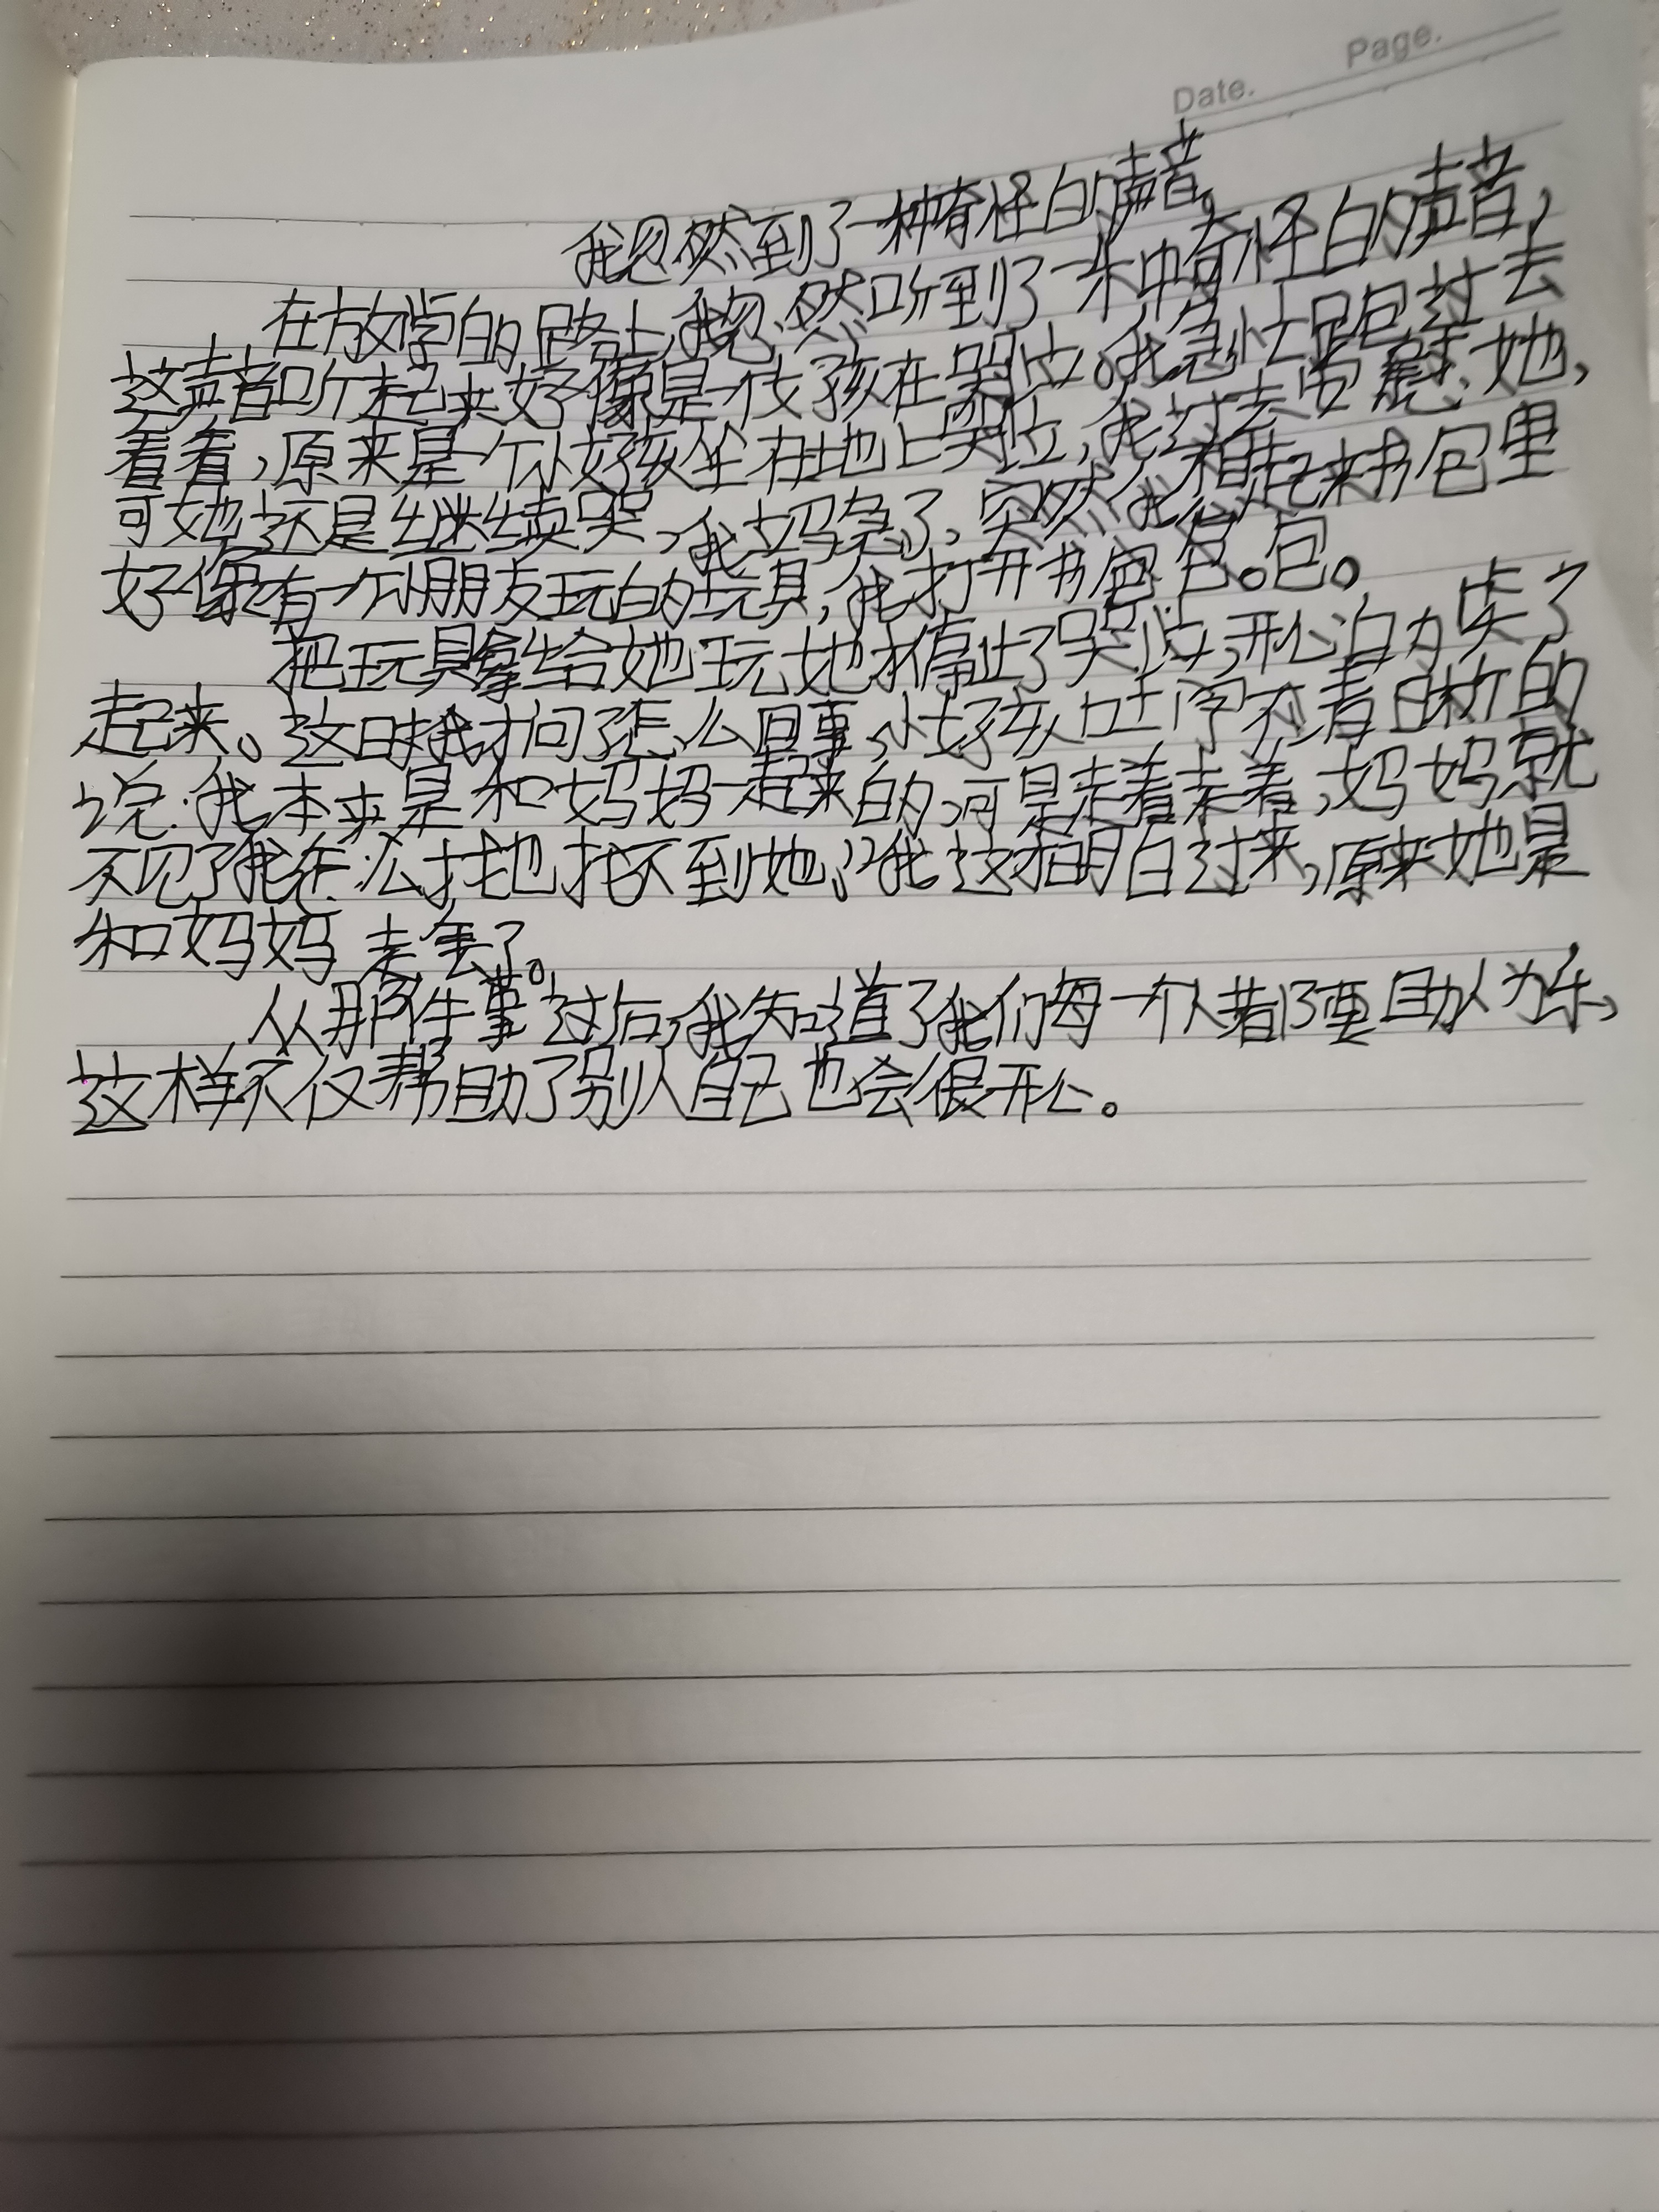 Page.
Date.
我忽然到了一种奇怪的声音。
在放学的路上,我忽然听到了一种奇怪的声音,
这声音听起来好像是一女孩在哭泣。我急忙跑过去
看看,原来是一个小女孩坐在地上哭泣,我过去安慰她,
可她还是继续哭,我去妈急了,突然我想起来书包里
好像有一个小朋友玩的玩具,我打开书包包。包。
把玩具拿给她玩她才停止了哭泣,开心的大笑了
起来。这时我才问了怎么回事,小女孩吐字不清晰的
说:我本来是和妈妈一起来的,可是走着走着,妈妈就
不见了我怎么找也找不到她!?我这才明白过来,原来她是
和妈妈走丢了。
从那件事过后,我知道了我们每一个人都要助人为乐,
这样不仅帮助了别人自己也会很开心。